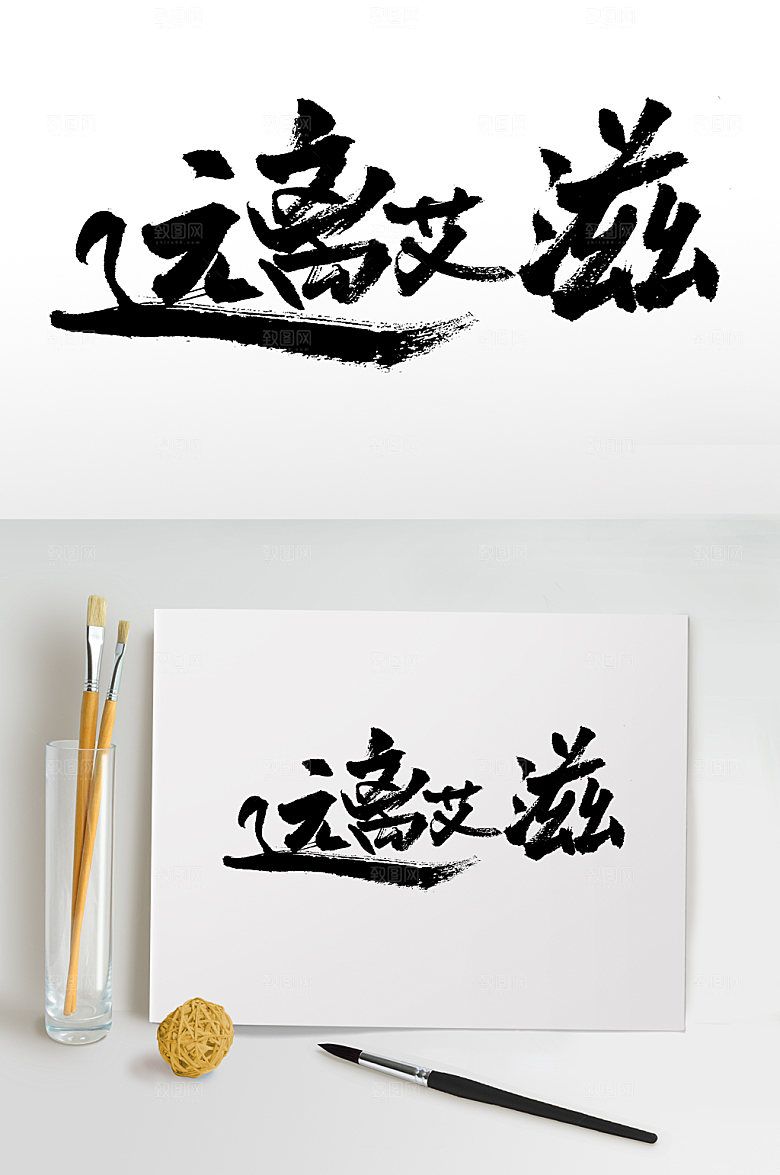 远离艾滋
远离艾滋